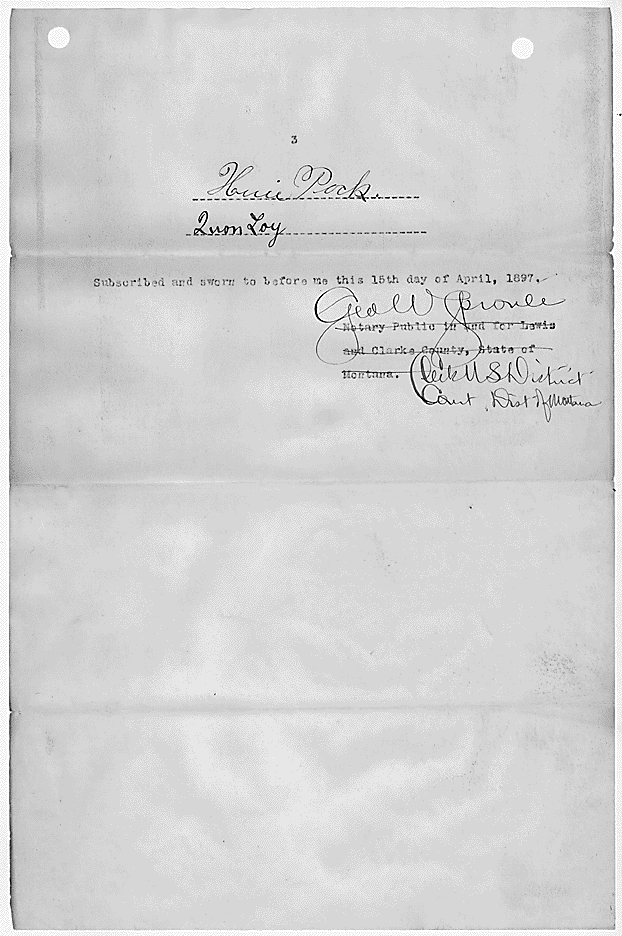 3
Huie Pock.
Quon Loy
Subscribed and sworn to before me this 15th day of April, 1897.
Geo W Sproule
Notary Public in and for Lewis
and Clarke County, State of
Montana. Clerk U S District
Court, Dist of Montana